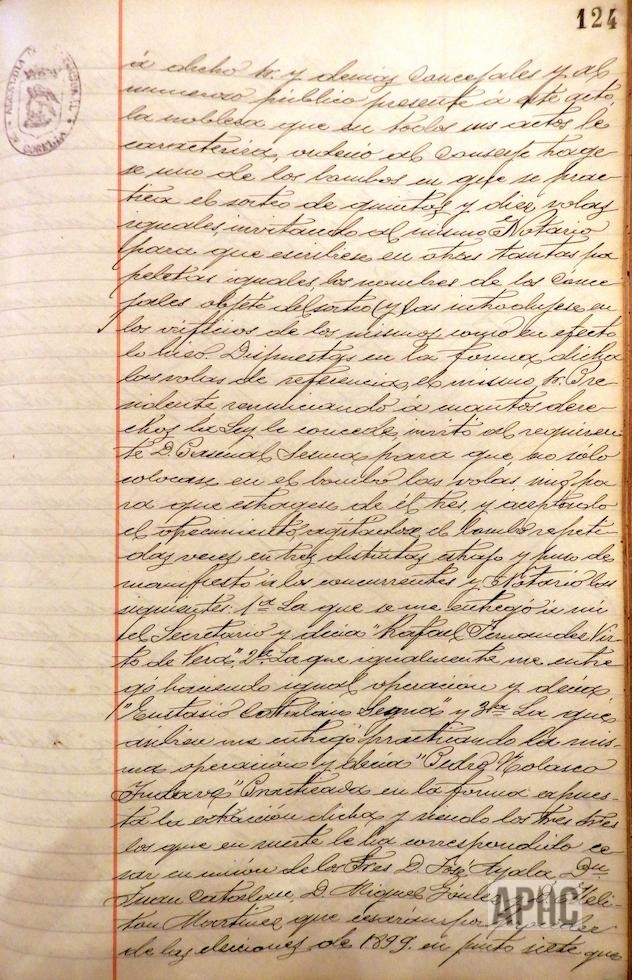 124
á dicho Sr. y demas Concejales y al
numeroso público presente á este acto
la nobleza que en todos sus actos le
caracteriza, ordenó al Conserje trage
se uno de los bombos en que se prac
tica el sorteo de quintos y diez volas
iguales, invitando al mismo Notario
para que escribiese en otras tantas pa
peletas iguales los nombres de los Conce
jales objeto del sorteo y las introdujese en
los de los mismos como en efecto
lo hizo. Dispuestas en la forma dicha
las volas de referencia, el mismo Sr. Pre
sidente renunciando á cuantos dere
chos la Ley le concede, invitó al requiren
te D. Pascual Sesma para que no solo
colocase en el bombo las volas, sino pa
ra que estragese de él tres, y aceptando
el ofrecimiento, agitados el bombo repeti
das veces, en tres distintas estrajo y puso de
manifiesto á los concurrentes y Notario las
siguientes: 1ª La que se me entregó á mi
el Secretario y decia "Rafael Fernandez Vir
to de Vera", 2ª La que igualmente me entre
gó haciendo igual operacion y decia
"Eustasio Catalan Sesma" y 3ª La que
me entregó practicando la mis
ma operacion y decia "Pedro Nolasco
" Practicada en la forma espues
ta la estracion dicha y siendo los tres
los que en suerte le ha correspondido ce
sar en union de los tres D. José Ayala, Dn
Juan Catalan, D. Miguel y D. Meli
ton Martinez que cesaran por
de las elecciones de 1899. en junto siete que
APHC
CORELLA